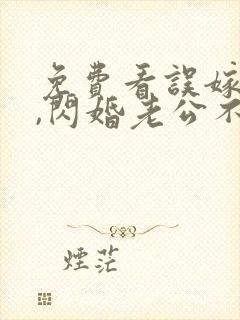 免費看誤嫁
,閃婚老公不
煙茫